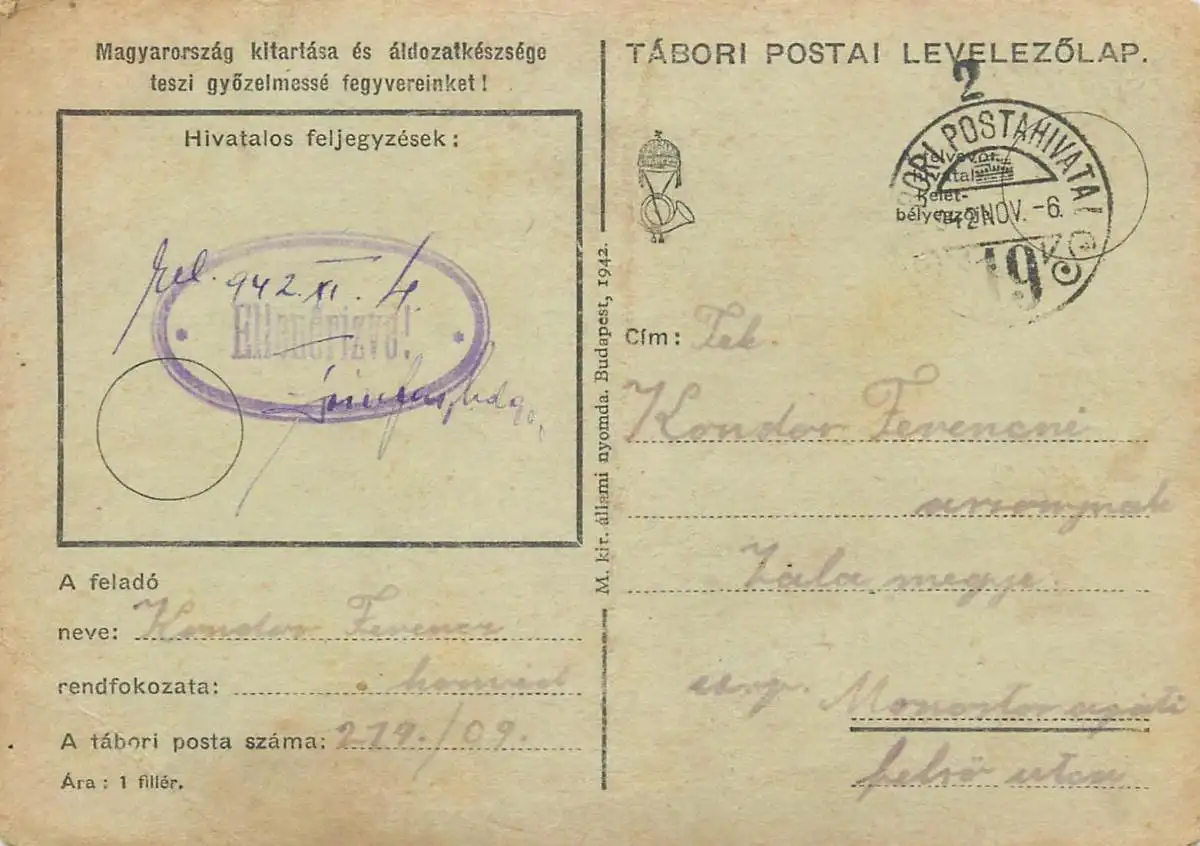 Magyarország kitartása és áldozatkészsége
teszi győzelmessé fegyvereinket!
Hivatalos feljegyzések:
942. XI. 4
Ellenőrizve!
A feladó
neve: Kondor Ferencz
rendfokozata: honvéd
A tábori posta száma: 219./09.
Ára : 1 fillér.
M. kir. állami nyomda. Budapest, 1942.
TÁBORI POSTAI LEVELEZŐLAP.
2
POSTAHIVATAL
Kelet-
bélyegzője
942 NOV. -6.
19
Cím: Tek.
Kondor Ferencné
Zala megye.
felső utca